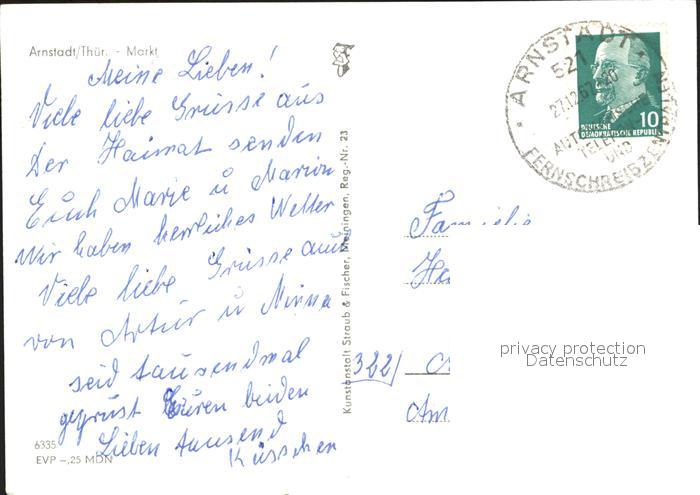 Arnstadt/Thür. - Markt
Meine Lieben!
Viele liebe Grüsse aus
Der Heimat senden
Euch Marie u Marion
Wir haben herrliches Wetter
Viele liebe Grüsse auch
von Artur u Minna
seid tausendmal
geprüst Euren beiden
Lieben tausend
Küsschen
6335
EVP -,25 MDN
Kunstanstalt Straub & Fischer, Meiningen, Reg.-Nr. 23
ARNSTADT
521
27.12.67
AUT
TELE
UND
FERNSCHREIBZEN
10
DEUTSCHE
DEMOKRATISCHE REPUBLIK
Familie
He
322/
Am
privacy protection
Datenschutz